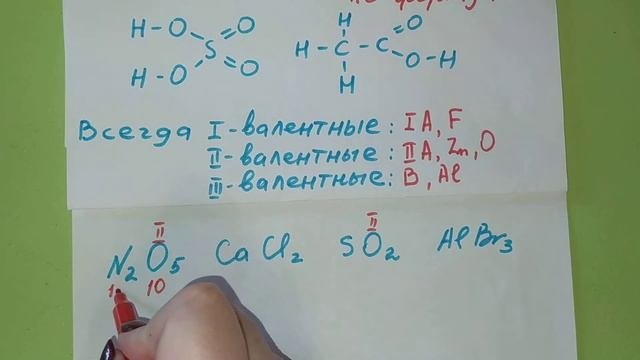 H-O O
S
H-O O
H O
H-C-C
H O-H
Всегда I-валентные: IA, F
II-валентные: IIA, Zn, O
III-валентные: B, Al
II II
N2O5 CaCl2 SO2 AlBr3
1 10